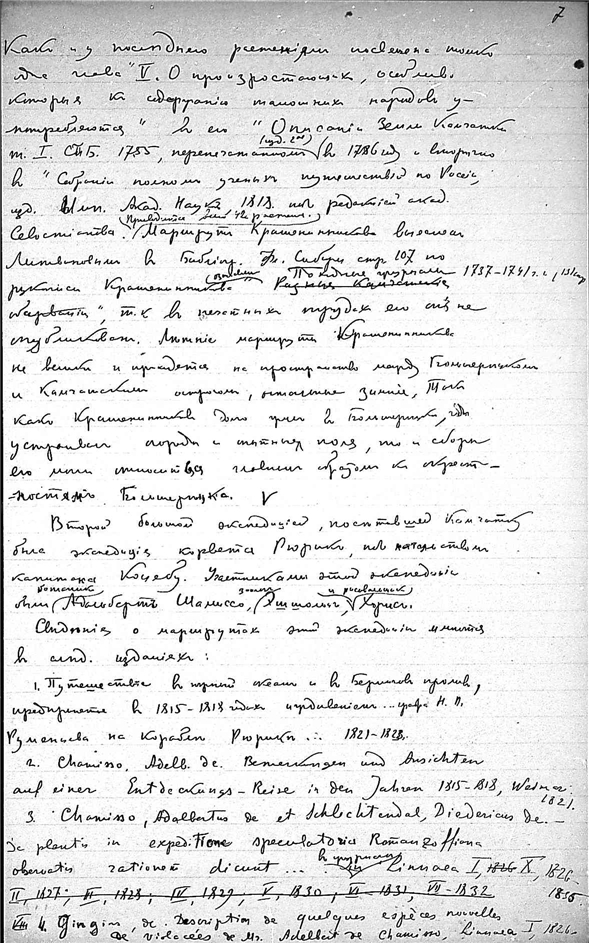 7
Какъ и у последняго растеніямъ посвящена только
одна глава "V. О произростающихъ, особливо
которыя къ содержанію тамошнихъ народовъ у-
потребляются" въ его "Описаніи Земли Камчатки
(изд. 2ое)
т. I. СПБ. 1755, перепечатанномъ въ 1786 году и вторично
въ "Собраніи полномъ ученыхъ путешествій по Россіи,
изд. Имп. Акад. Наукъ 1818. подъ редакціей акад.
Севастьянова. Маршрутъ Крашенинникова выписанъ
Литвиновымъ въ Библіогр. Фл. Сибири стр. 107 по
рукописи Крашенинникова 1737-1741 г.г.,
т.к. въ печатныхъ трудахъ его онъ не
опубликованъ. Лѣтніе маршруты Крашенинникова
не велики и приходятся на пространство между Большерѣцкомъ
и Камчатскимъ острогомъ, остальные зимніе, Такъ
какъ Крашенинниковъ долго жилъ въ Большерѣцкѣ, гдѣ
устроивалъ огороды и опытныя поля, то и сборы
его могли относиться главнымъ образомъ къ окрест-
-ностямъ Большерѣцка. V
Второй большой экспедиціей, посѣтившей Камчатку
была экспедиція корвета Рюрикъ, подъ начальствомъ
капитана Коцебу. Участниками этой экспедиціи
ботаникъ зоологъ и рисовальщикъ
были Адальбертъ Шамиссо, Эшшольцъ, Хорисъ.
Свѣдѣнія о маршрутахъ этой экспедиціи имѣются
въ слѣд. изданіяхъ:
1. Путешествіе въ южный океанъ и въ Беринговъ проливъ,
предпринятое въ 1815-1818 годахъ иждивеніемъ... графа Н. П.
Румянцева на кораблѣ Рюрикъ... 1821-1823.
2. Chamisso, Adelb. de. Bemerkungen und Ansichten
auf einer Entdeckungs-Reise in den Jahren 1815-1818, Weimar.
1821.
3. Chamisso, Adalbertus de et Schlechtendal, Diedericus de. -
De plantis in expeditione speculatoria Romanzoffiana
observatis rationem dicunt... Linnaea I, 1826 X, 1826
II, 1827. III, 1828, IV, 1829, V, 1830, VI, 1831, VII - 1832 1836.
VIII 4. Gingins, de. Description de quelques espèces nouvelles
de violacées de Mr. Adelbert de Chamisso, Linnaea I, 1826.